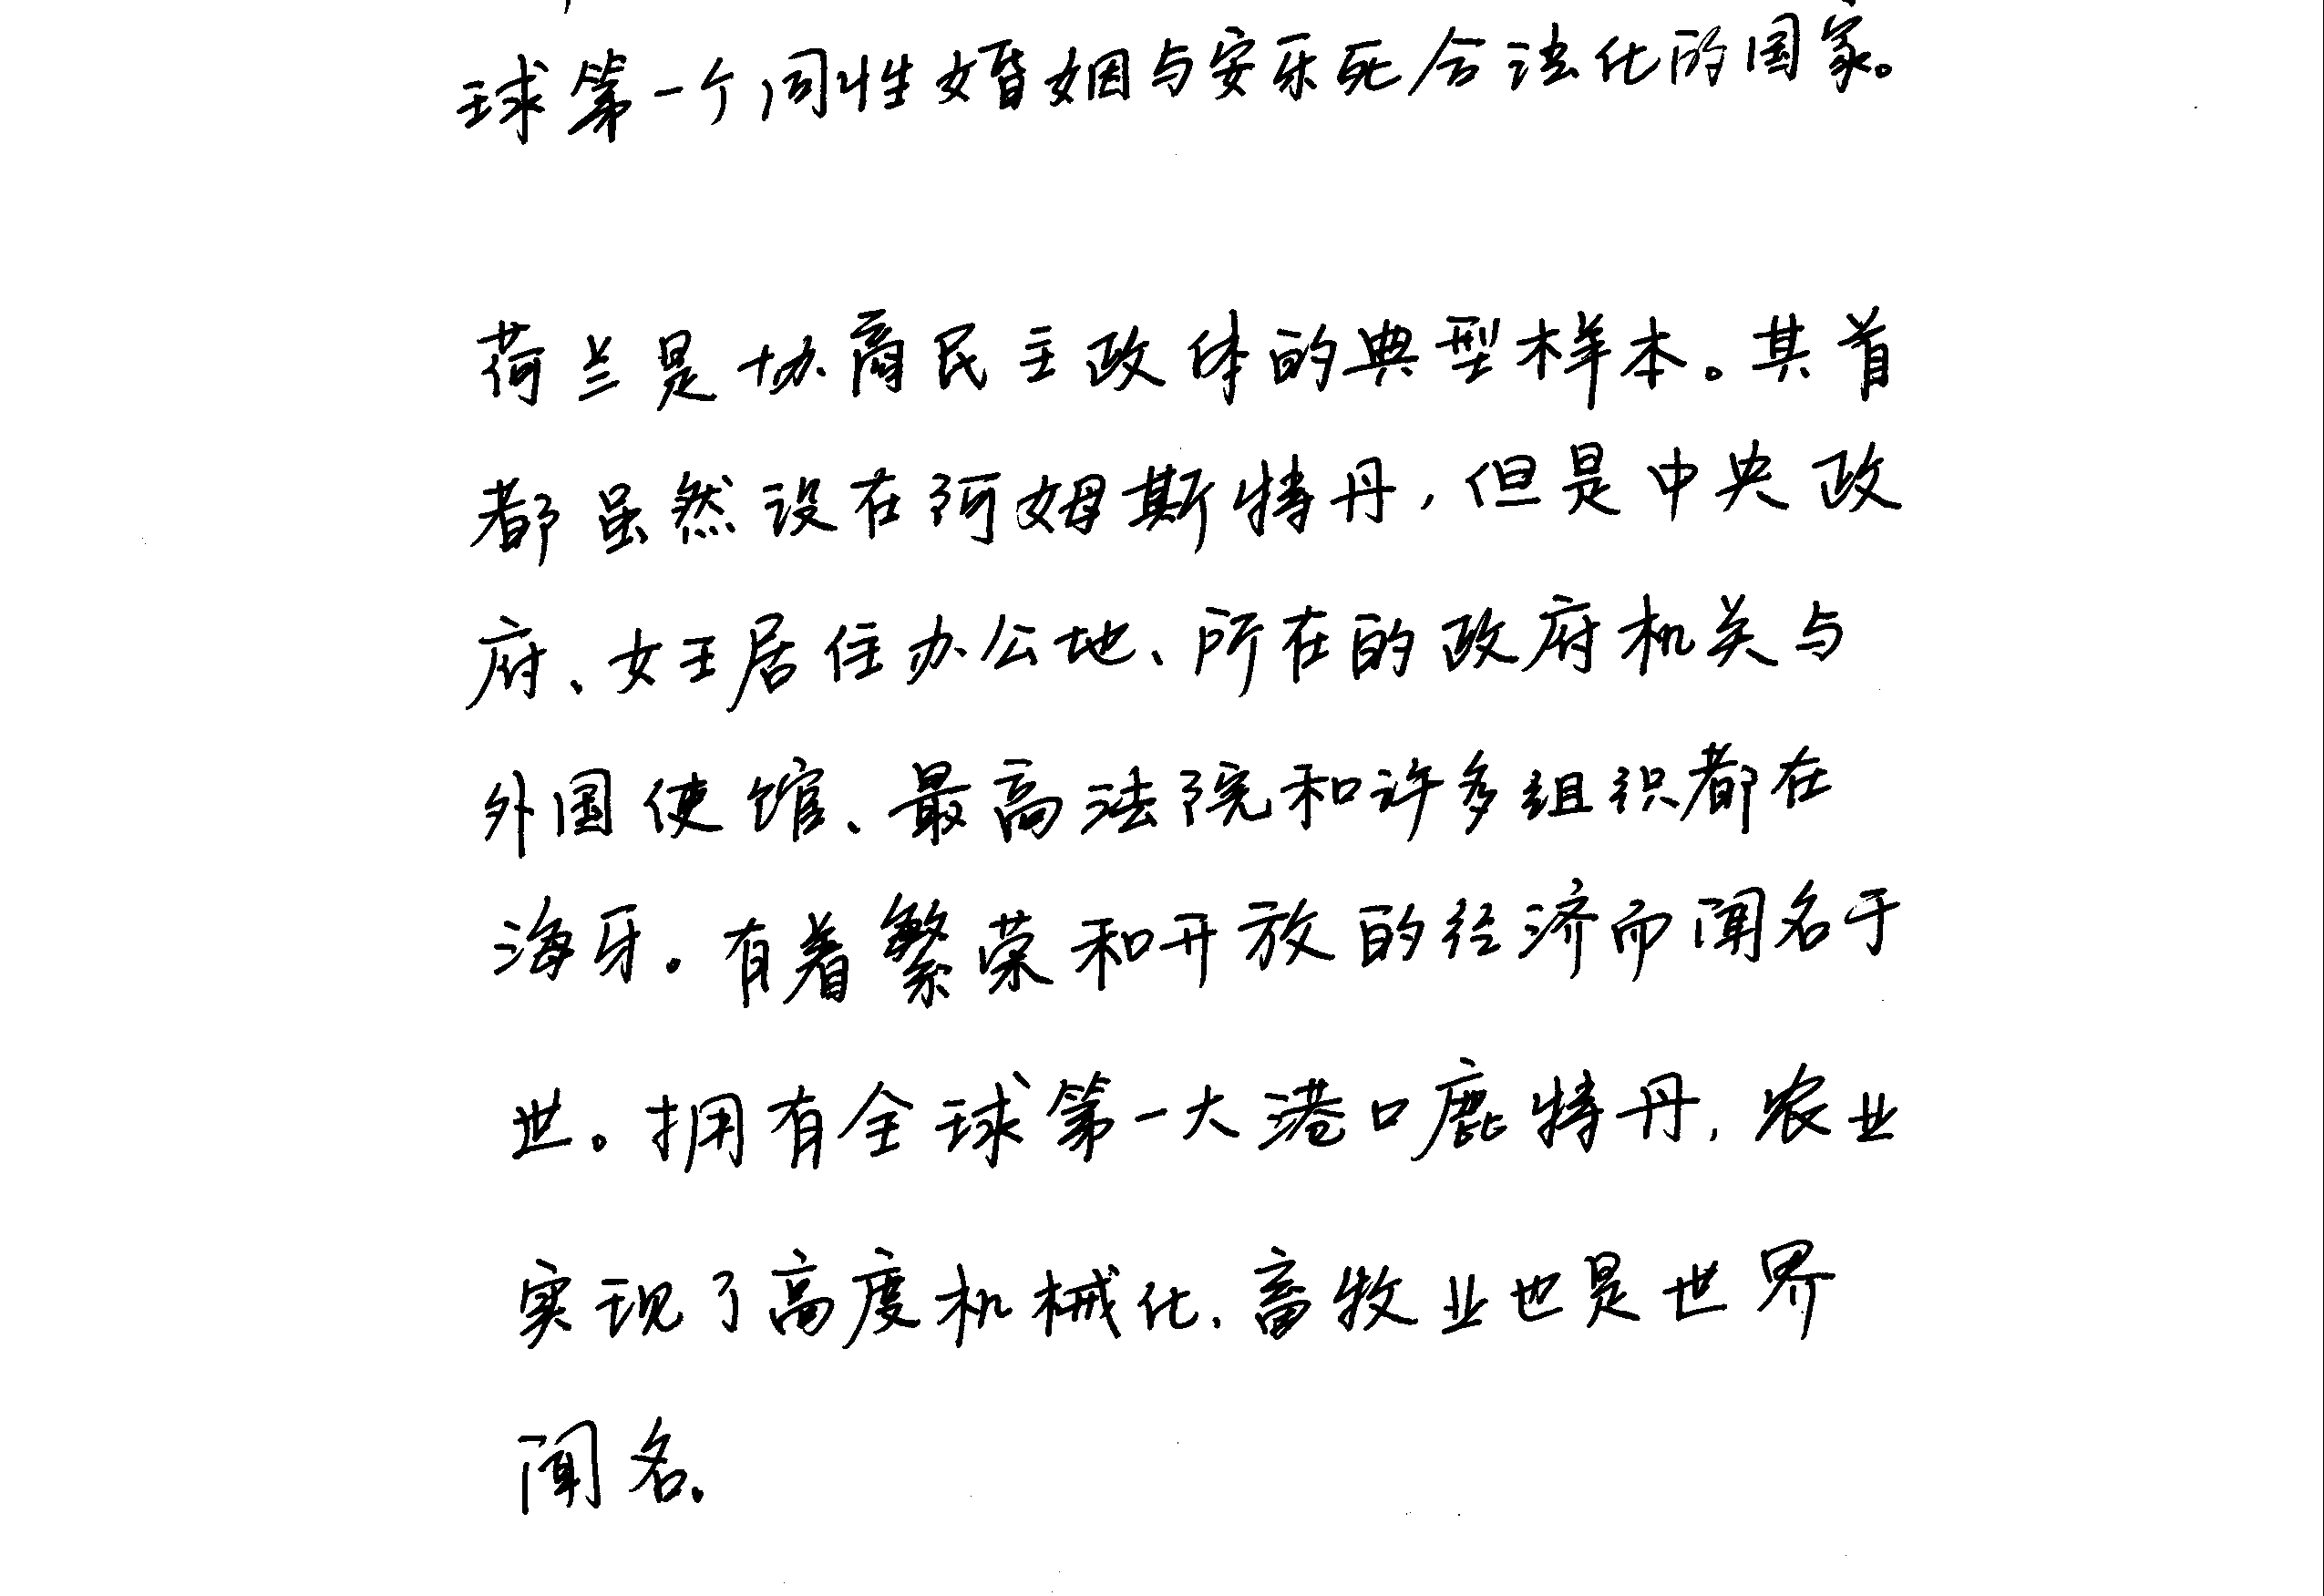 球第一个同性婚姻与安乐死合法化的国家。
荷兰是协商民主政体的典型样本。其首
都虽然设在阿姆斯特丹,但是中央政
府、女王居住办公地、所在的政府机关与
外国使馆、最高法院和许多组织都在
海牙。有着繁荣和开放的经济而闻名于
世。拥有全球第一大港口鹿特丹,农业
实现了高度机械化,畜牧业也是世界
闻名。